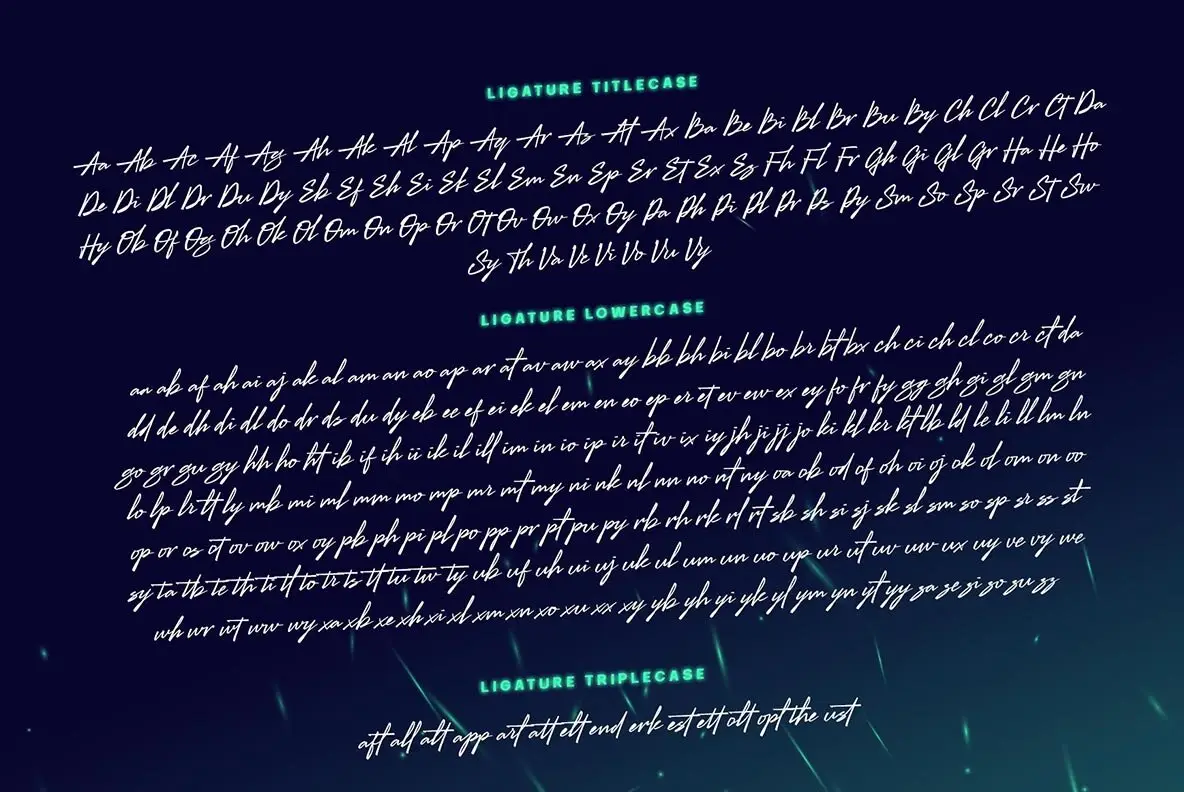 LIGATURE TITLECASE
Aa Ab Ac Af Ag Ah Ak Al Ap Aq Ar As At Ax Ba Be Bi Bl Br Bu By Ch Cl Cr Ct Da
De Di Dl Dr Du Dy Eb Ef Eh Ei Ek El Em En Ep Er Et Ex Ez Fh Fl Fr Gh Gi Gl Gr Ha He Ho
Hy Ob Of Og Oh Ok Ol Om On Op Or Ot Ov Ow Ox Oy Pa Ph Pi Pl Pr Ps Py Sm So Sp Sr St Sw
Sy Th Va Ve Vi Vo Vu Vy
LIGATURE LOWERCASE
an ab af ah ai aj ak al am an ao ap ar at av aw ax ay bb bh bi bl bo br bt bx ch ci ch cl co cr ct da
dd de dh di dl do dr ds du dy eb ec ef ei ek el em en eo ep er et ev ew ex ey fo fr fy gg gh gi gl gm gn
go gr gu gy hh ho ht ib if ih ii ik il ill im in io ip ir it iv ix iy jh ji jj jo ki kl kr kt lb ld le li ll lm ln
lo lp lr lt ly mb mi ml mm mo mp mr mt my ni nk nl nn no nt ny oa ob od of oh oi oj ok ol om on oo
op or os ot ov ow ox oy pb ph pi pl po pp pr pt pu py rb rh rk rl rt sb sh si sj sk sl sm so sp sr ss st
sy ta tb te th ti tl to tr ts tt tu tw ty ub uf uh ui uj uk ul um un uo up ur ut uv uw ux uy ve vy we
wh wr wt ww wy xa xb xe xh xi xl xm xn xo xu xx xy yb yh yi yk yl ym yn yt yy za ze zi zo zu zz
LIGATURE TRIPLECASE
aft all alt app art att elt end erk est ett olt opt the ust